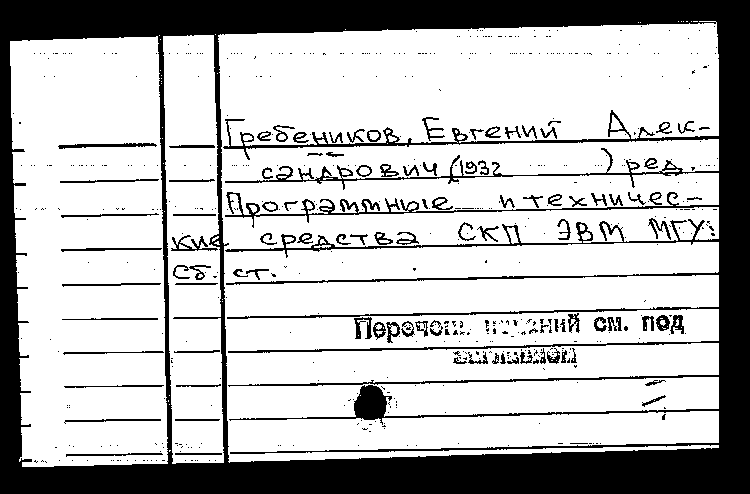 Гребеников, Евгений Алек-
сандрович (1932 ) ред.
Программные и техничес-
кие средства СКП ЭВМ МГУ:
Сб. ст.
см. под
заглавием